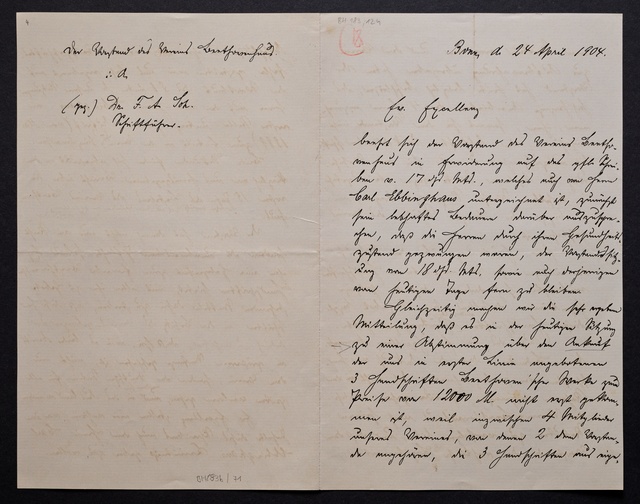 Der Vorstand des Vereins Beethovenhaus
i. A.
(gez.) Dr. F. A.
Schriftführer.
BH 183, 124
Bonn, d. 24 April 1904.
Ew. Excellenz
beehrt sich der Vorstand des Vereins Beetho-
venhaus in Erwiderung auf das gfl. Schrei-
ben v. 17 ds. Mts., welches auch von Herrn
Carl Ebbinghaus unterzeichnet ist, zunächst
sein lebhaftes Bedauern darüber auszuspre-
chen, daß die Herren durch ihren Gesundheits-
zustand gezwungen waren, der Vorstandssitz-
ung vom 18 ds. Mts. sowie auch derjenigen
vom heutigen Tage fern zu bleiben.
Gleichzeitig machen wir die sehr ergebene
Mitteilung, daß es in der heutigen Sitzung
zu einer Abstimmung über den Ankauf
der uns in erster Linie angebotenen
3 Handschriften Beethoven'sche Werke zum
Preise von 12000 M nicht erst gekom-
men ist, weil inzwischen 4 Mitglieder
unseres Vereines, von denen 2 dem Vorstan-
de angehören, die 3 Handschriften aus eige-